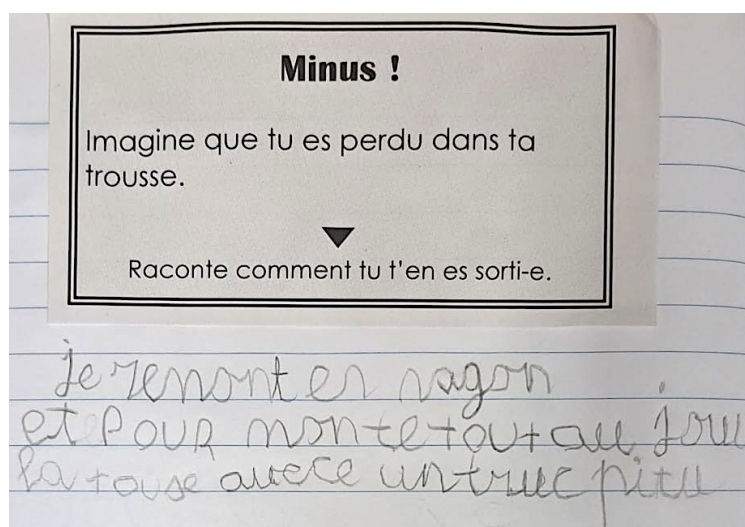 Minus !
Imagine que tu es perdu dans ta
trousse.
Raconte comment tu t'en es sorti-e.
je remonter
et Pour monte tout au jou
la touse avece un truc pitu